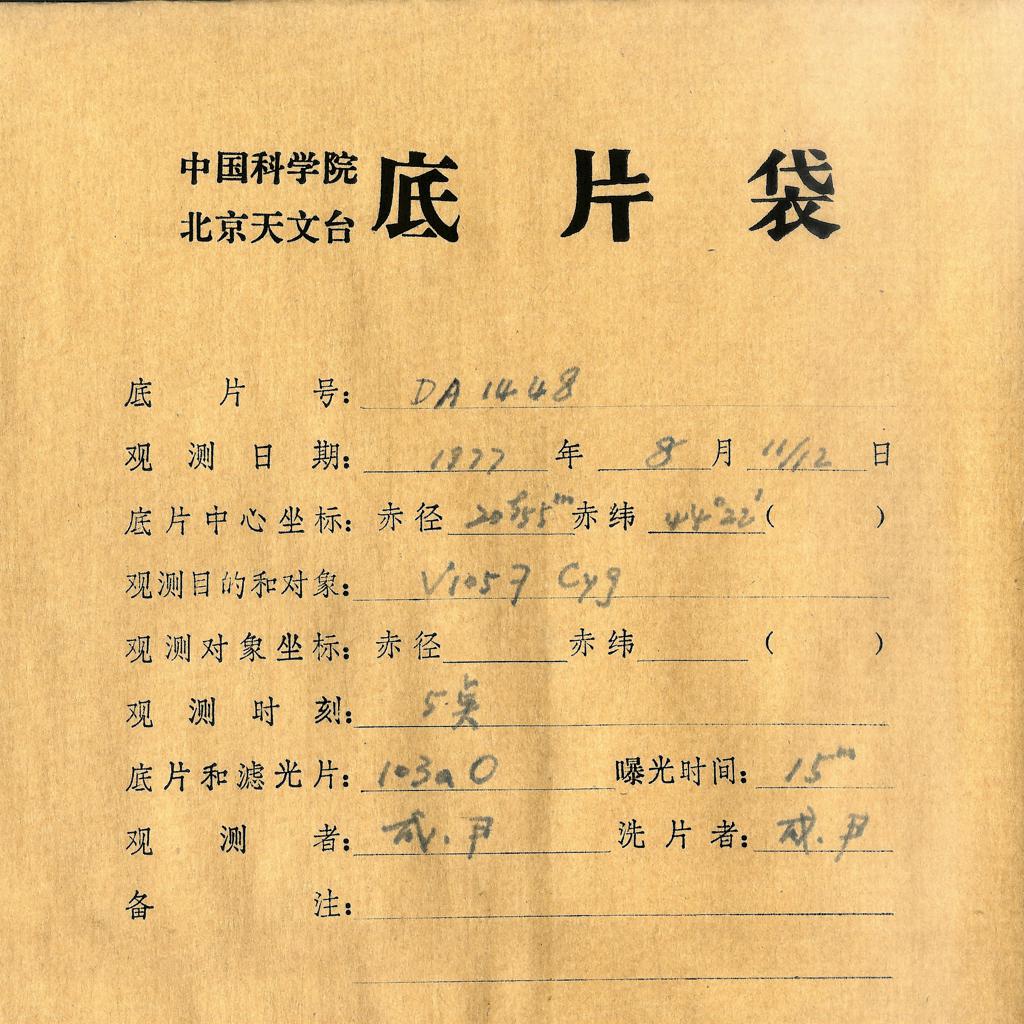 中国科学院
北京天文台
底片袋
底片号: DA 1448
观测日期: 1977年 8月 11/12日
底片中心坐标: 赤径 20ʰ55ᵐ 赤纬 44°22′( )
观测目的和对象: V1057 Cyg
观测对象坐标: 赤径 赤纬 ( )
观测时刻: 5点
底片和滤光片: 103a O 曝光时间: 15ᵐ
观测者: 成.尹 洗片者: 成.尹
备注: